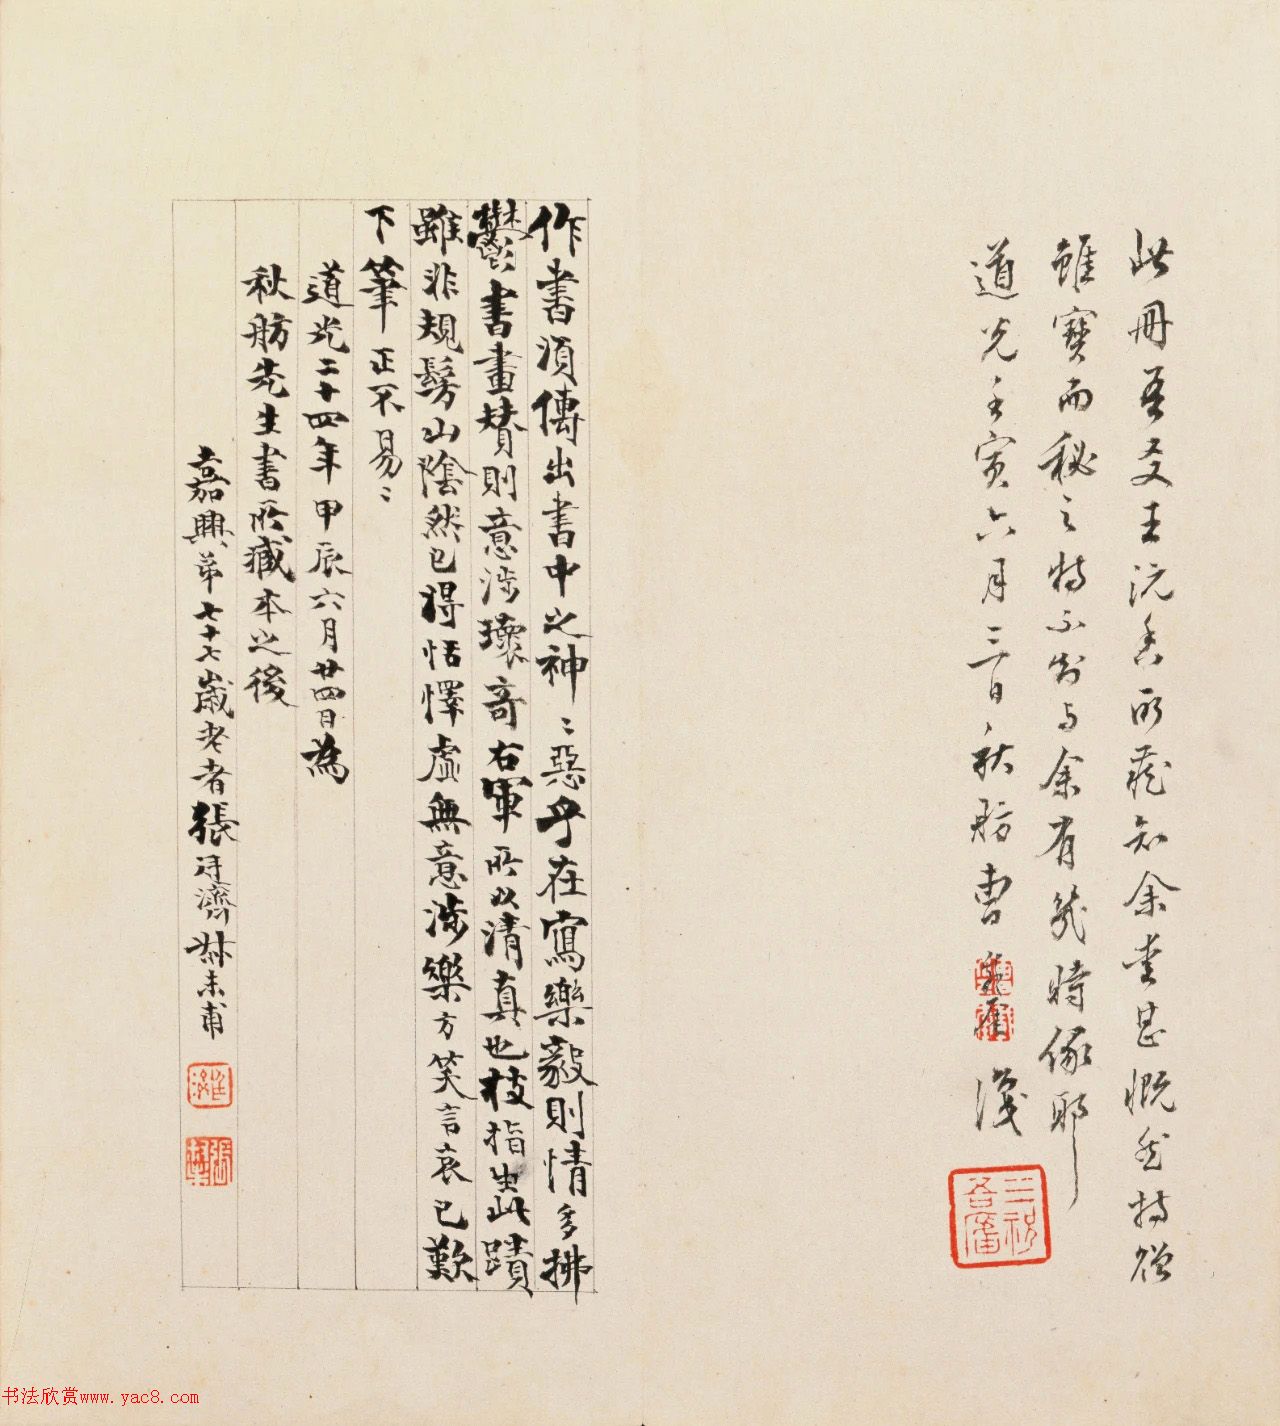 此册吾友王沅香所藏知余爱甚慨然持贈
雖寶而秘之特不知与余有幾時緣耶
道光壬寅六月三日秋舫曹
識
作書須傳出書中之神〻惡乎在寫樂毅則情多拂
鬱書畫贊則意涉瓌奇右軍所以清真也枝指生此蹟
雖非規髣山陰然已得恬懌虛無意涉樂方笑言哀已歎
下筆正不易〻
道光二十四年甲辰六月廿四日為
秋舫先生書所藏本之後
嘉興弟七十七歲老者張廷濟叔未甫
书法欣赏www.yac8.com